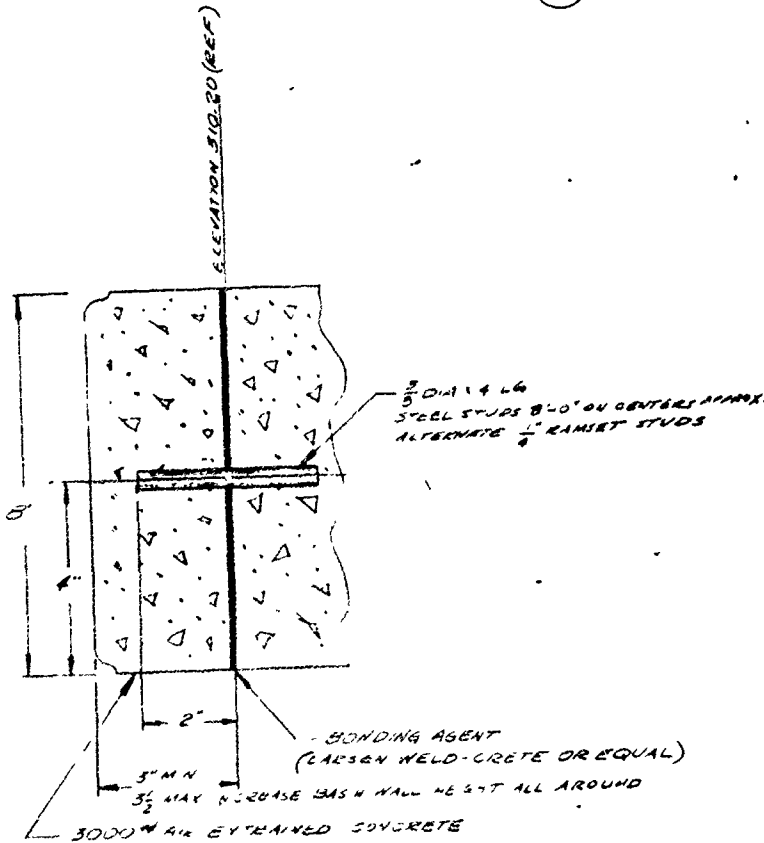 ELEVATION 310.20 (REF)
3/8 DIA x 4 LG
STEEL STUDS 8'-0" ON CENTERS APPROX.
ALTERNATE 1/4" RAMSET STUDS
8"
4"
2"
BONDING AGENT
(LARSEN WELD-CRETE OR EQUAL)
3" MIN
3 1/2 MAX INCREASE BASIN WALL HEIGHT ALL AROUND
3000# AIR ENTRAINED CONCRETE